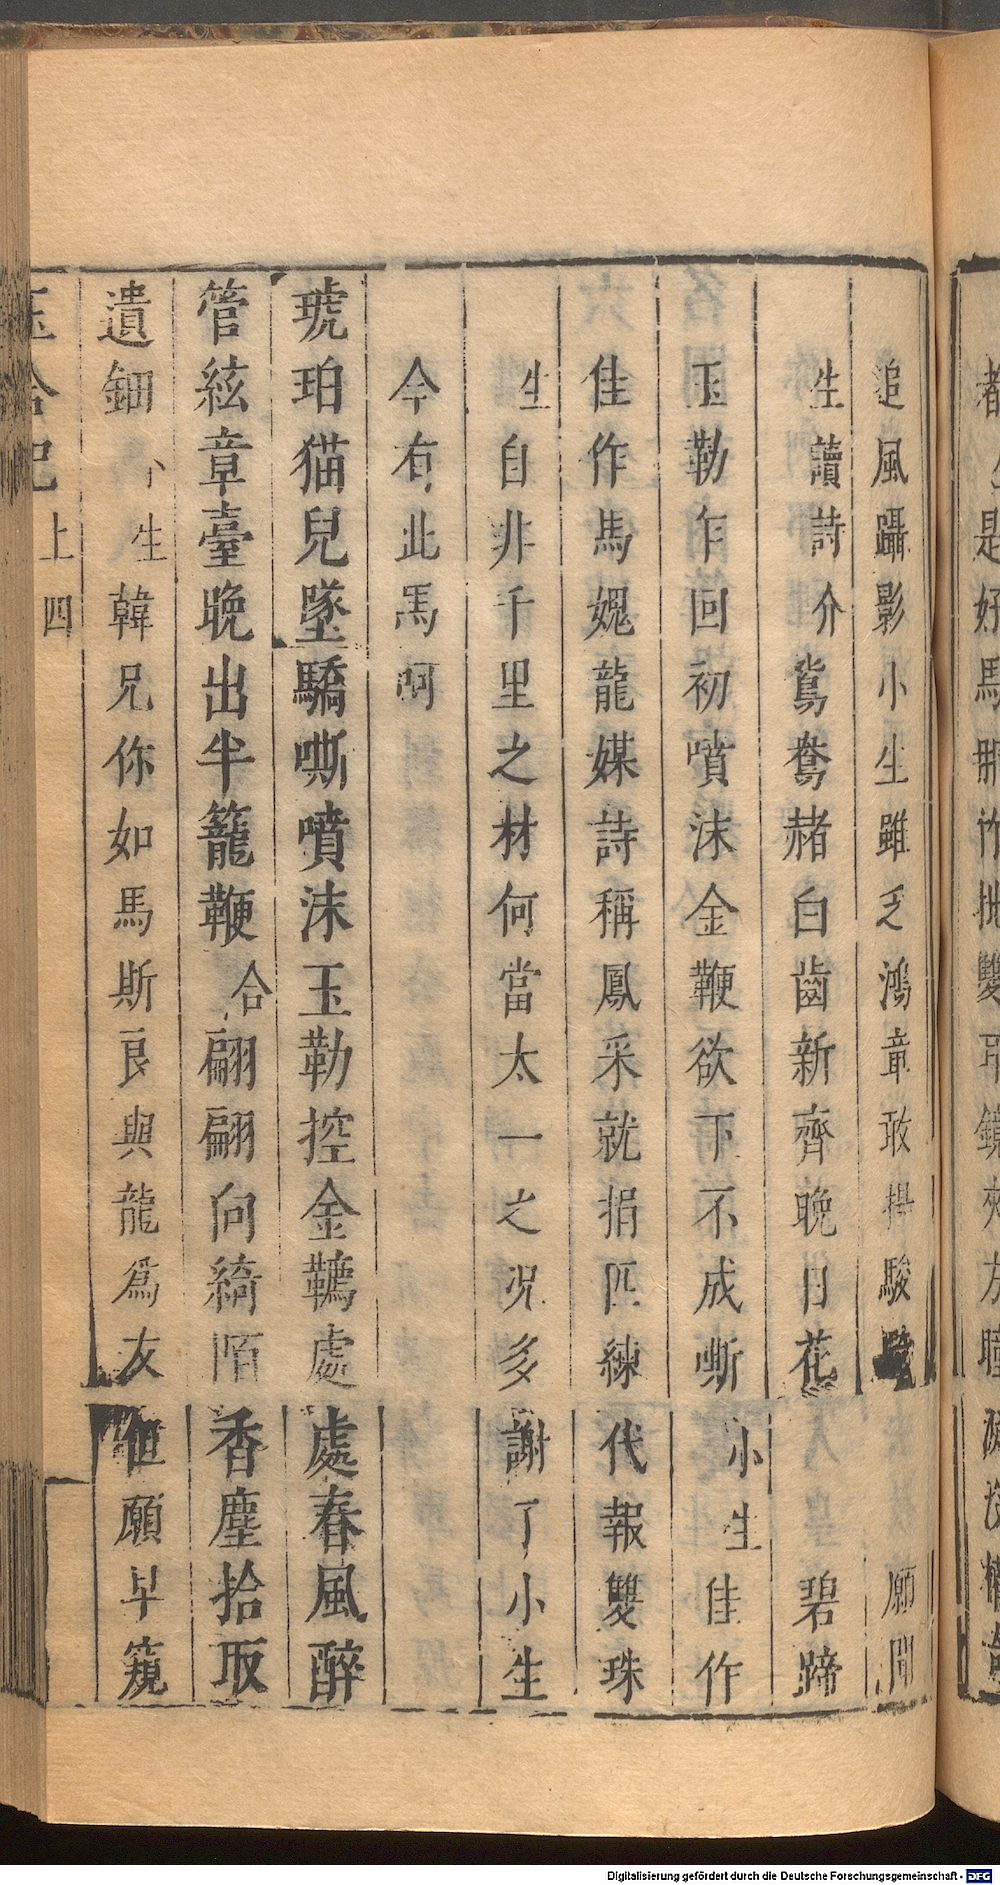 追風躡影小生雖乏鴻章敢揖駿 願聞
生讀詩介鴛鴦赭白齒新齊晚日花 碧蹄
玉勒乍回初噴沫金鞭欲下不成嘶小生佳作
佳作馬媿龍媒詩稱鳳采就捐匹練代報雙珠
生自非千里之材何當太一之況多謝了小生
今有此馬啊
琥珀猫兒墜驕嘶噴沫玉勒控金韉處處春風醉
管絃章臺晚出半籠鞭合翩翩向綺陌香塵拾取
遺鈿 生韓兄你如馬斯良與龍為友但願早窺
玉合記 上 四
Digitalisierung gefördert durch die Deutsche Forschungsgemeinschaft - DFG